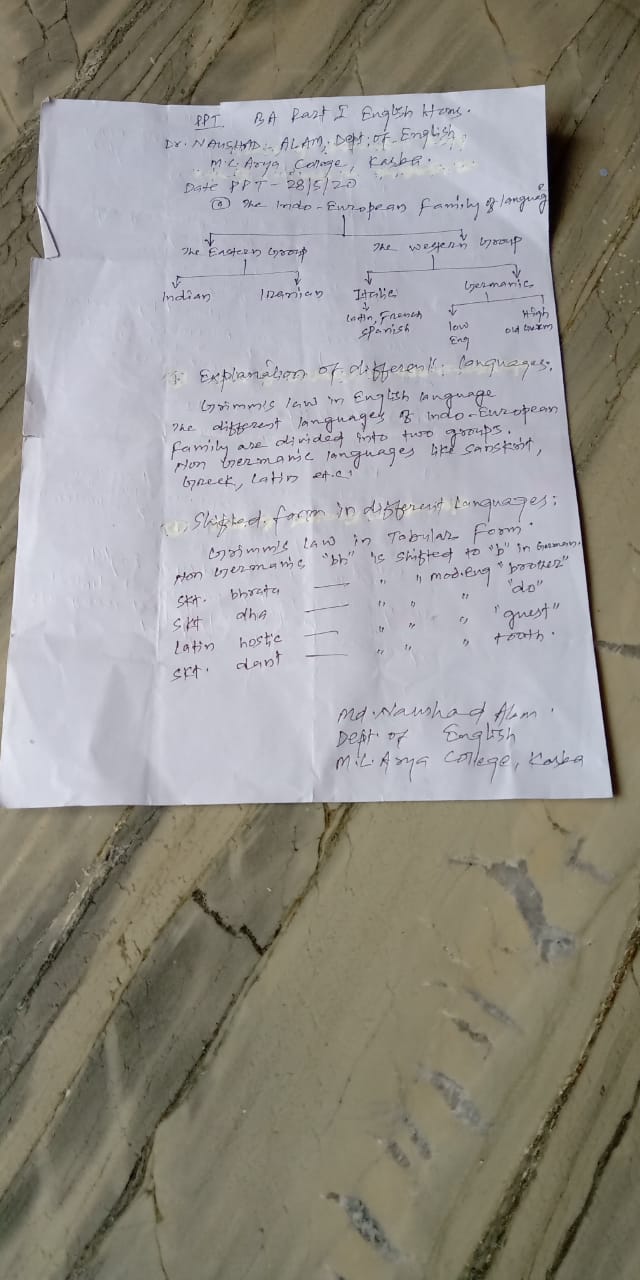 PPT BA Part I English Hons.
Dr. NAUSHAD ALAM, Dept. of English,
M.L. Arya College, Kasba.
Date PPT - 28/5/20
@ The Indo-European family of languag
The Eastern Group The Western Group
Indian Iranian Italic Germanic
Latin, French low High
Spanish Eng old
Explanation of different languages,
Grimm's law in English language
The different languages of Indo-European
family are divided into two groups.
Non Germanic languages like Sanskrit,
Greek, Latin etc.
Shifted form in different Languages:
Grimm's Law in Tabular Form.
Non Germanic "bh" is shifted to "b" in German.
Skt. bhrata — " " mod.Eng "brother"
Skt dha — " " " "do"
Latin hostic — " " " "guest"
Skt. dant — " " " tooth.
Md. Naushad Alam.
Dept. of English
M.L. Arya College, Kasba